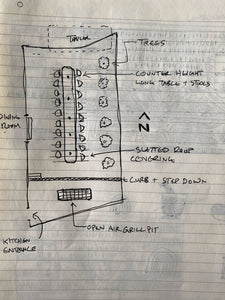 TREES
COUNTER HEIGHT
LONG TABLE + STOOLS
N
DINING
ROOM
SLATTED ROOF
COVERING
CURB + STEP DOWN
OPEN AIR GRILL PIT
KITCHEN
ENTRANCE